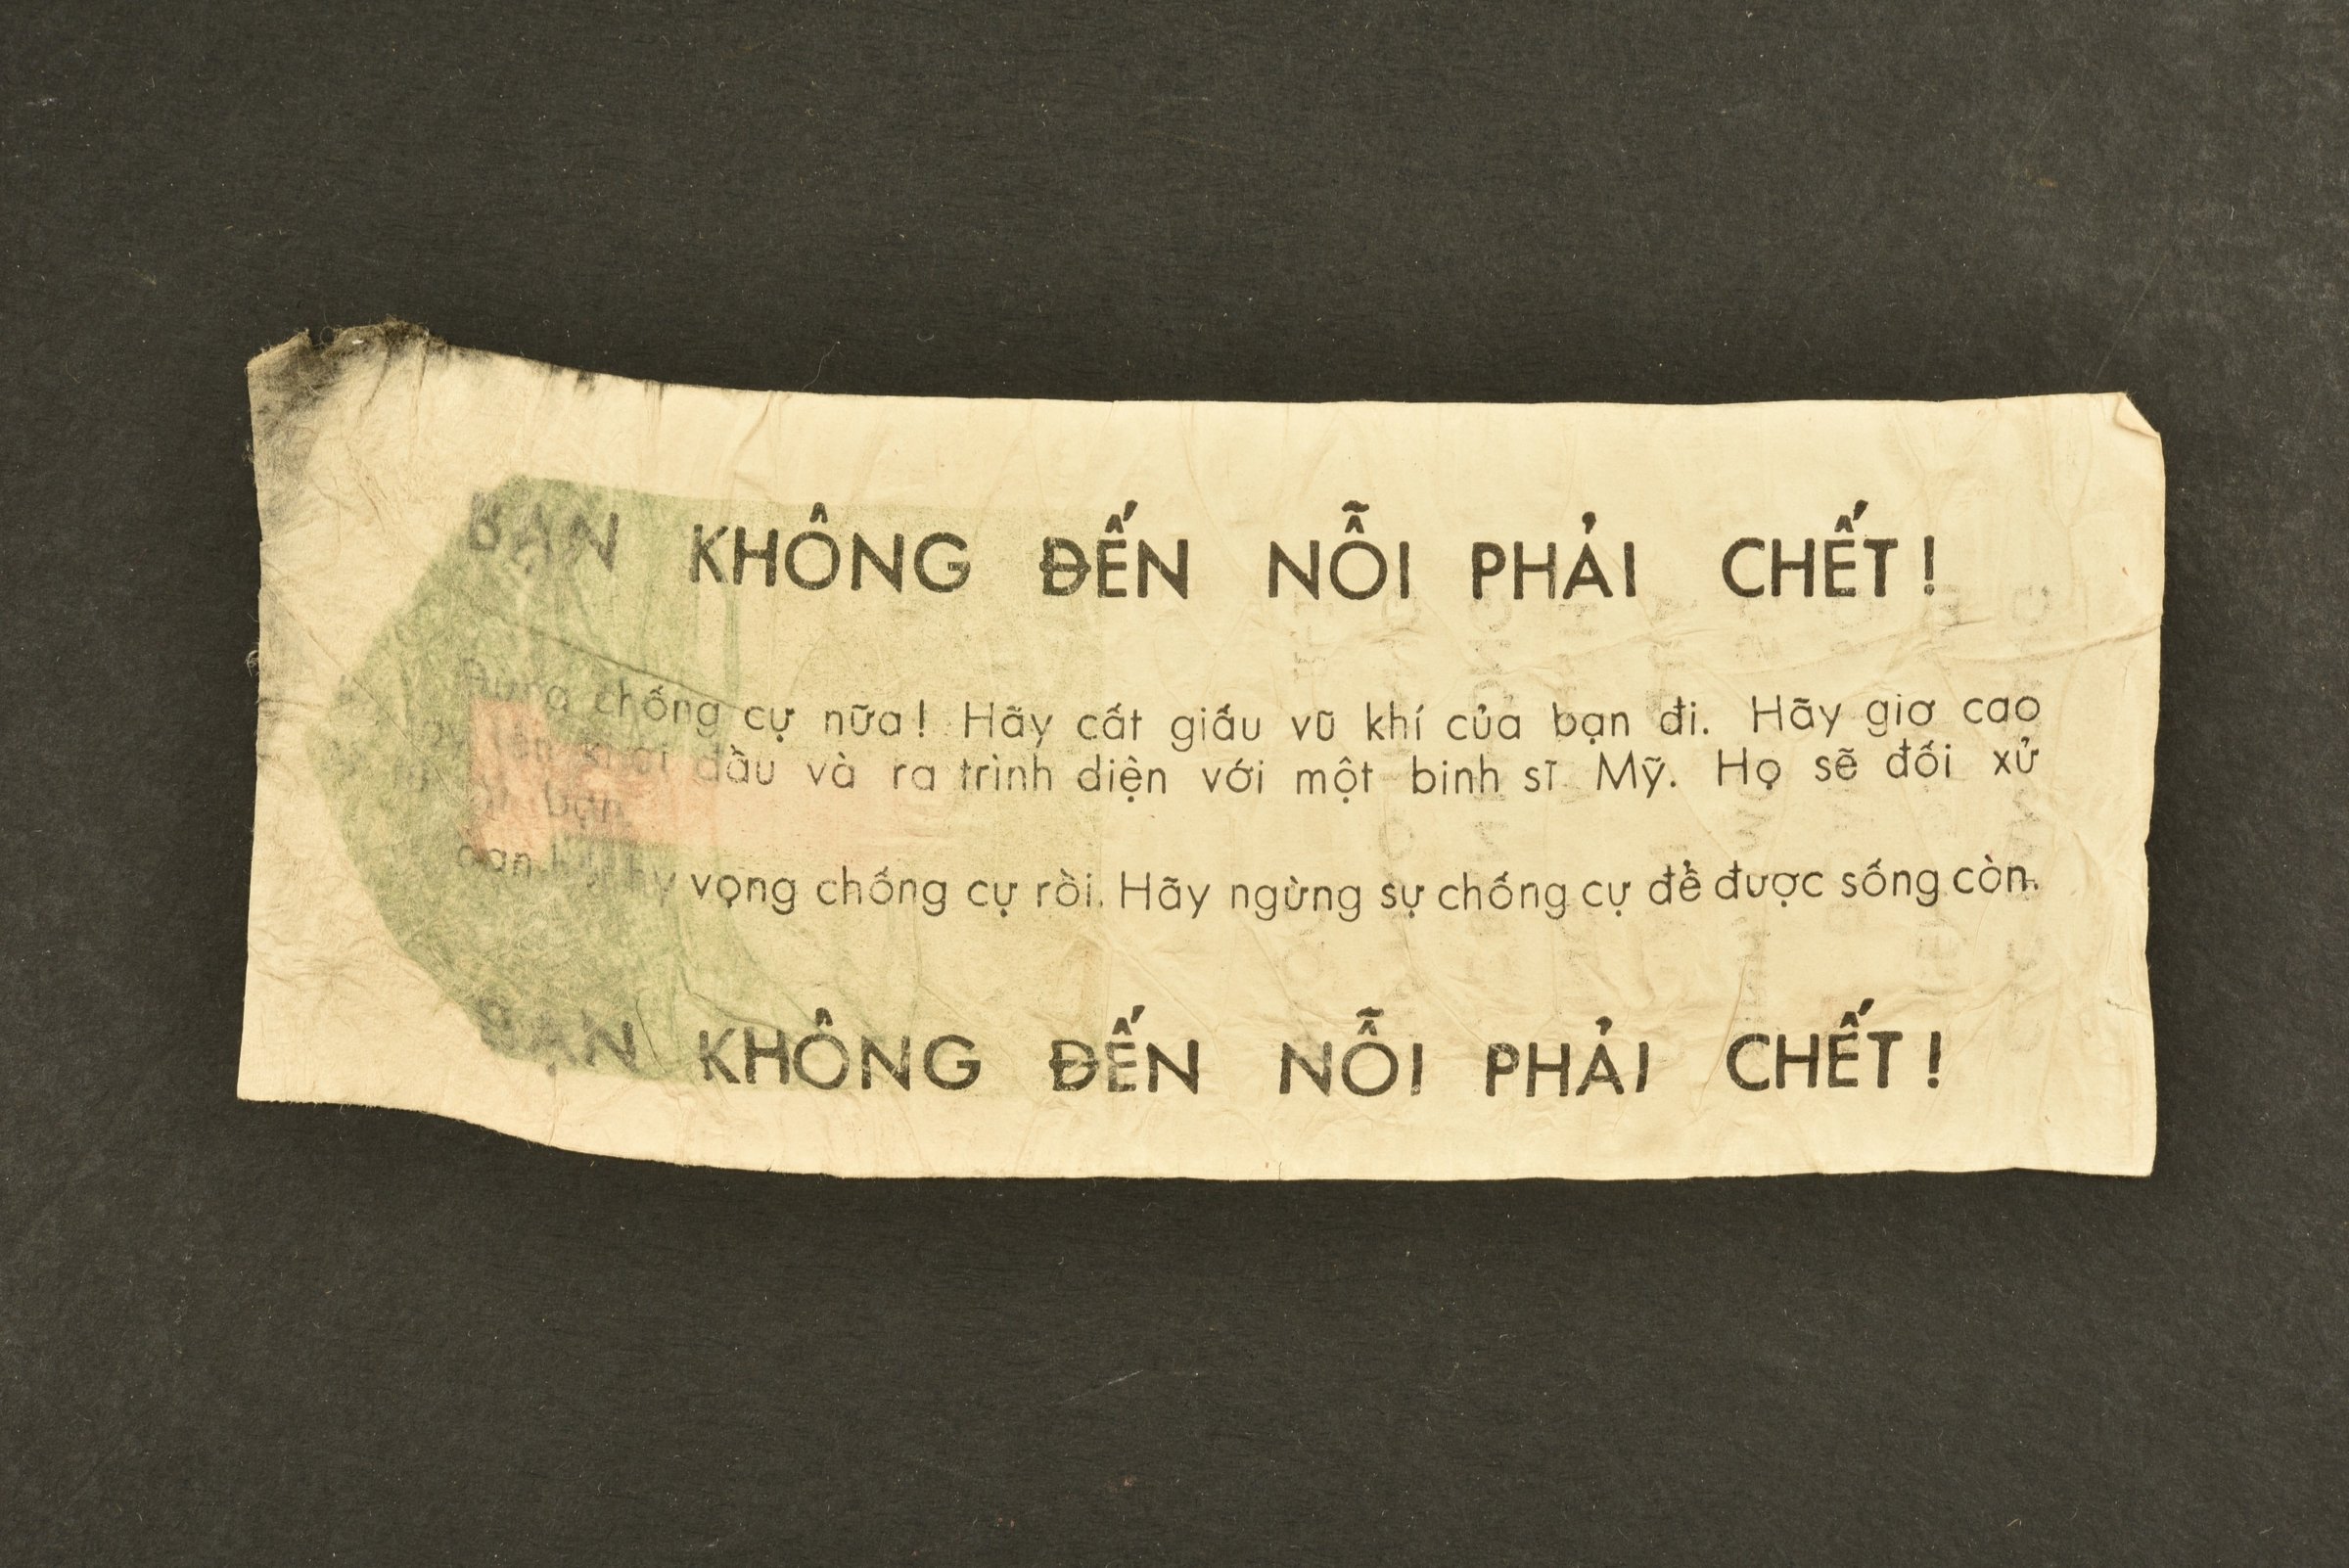 BẠN KHÔNG ĐẾN NỖI PHẢI CHẾT!
Đừng chống cự nữa! Hãy cất giấu vũ khí của bạn đi. Hãy giơ cao
tay lên khỏi đầu và ra trình diện với một binh sĩ Mỹ. Họ sẽ đối xử
bạn.
vọng chống cự rồi. Hãy ngừng sự chống cự để được sống còn.
BẠN KHÔNG ĐẾN NỖI PHẢI CHẾT!